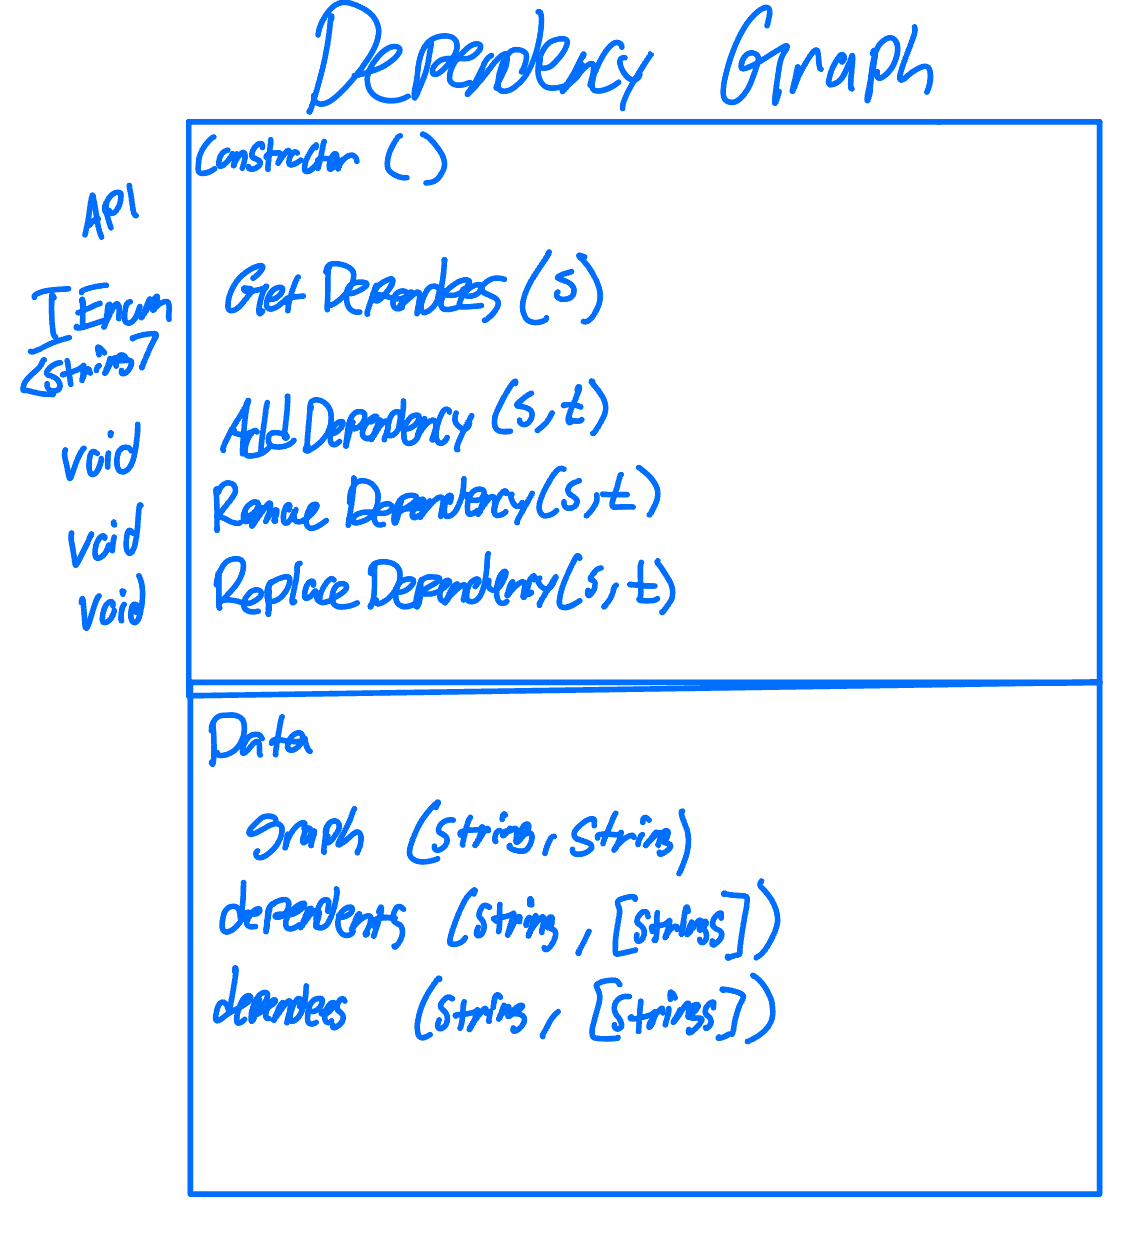 Dependency Graph
Constructor ()
API
IEnum Get Dependees (s)
<string>
void Add Dependency (s, t)
void Remove Dependency (s, t)
void Replace Dependency (s, t)
Data
graph (string, string)
dependents (string, [strings])
dependees (string, [strings])